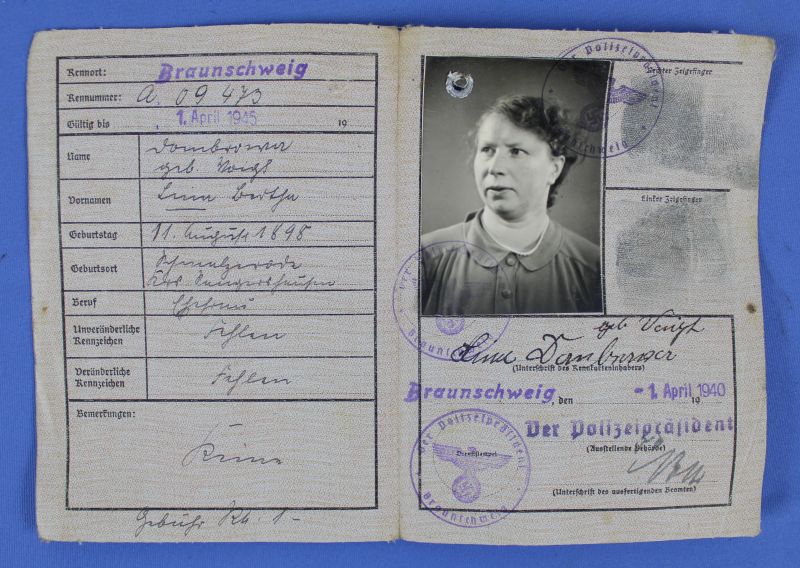 Kennort: Braunschweig
Kennummer: A. 09 473
Gültig bis 1. April 1945 19
Name Dombrowa
geb. Voigt
Vornamen Lina Bertha
Geburtstag 11. August 1898
Geburtsort Schmalzerode
Krs. Sangerhausen
Beruf Ehefrau
Unveränderliche
Kennzeichen Fehlen
Veränderliche
Kennzeichen Fehlen
Bemerkungen:
Keine
Gebühr RM. 1-
Der Polizeipräsident
Braunschweig
Rechter Zeigefinger
Linker Zeigefinger
Der Polizeipräsident
Braunschweig
geb. Voigt
Lina
(Unterschrift des Kennkarteninhabers)
Braunschweig, den - 1. April 1940
19
Der Polizeipräsident
(Ausstellende Behörde)
Der Polizeipräsident
Dienststempel
Braunschweig
(Unterschrift des ausfertigenden Beamten)